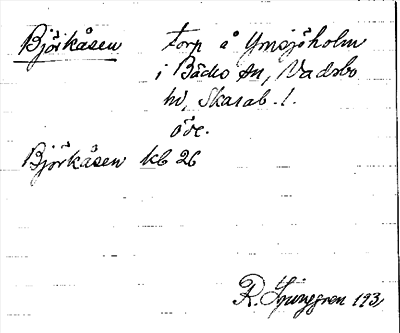 Björkåsen torp å Ymsjöholm
i Bäcks sn, Vadsbo
hd, Skarab. l.
öde.
Björkåsen kb 26
R. Ljunggren 193